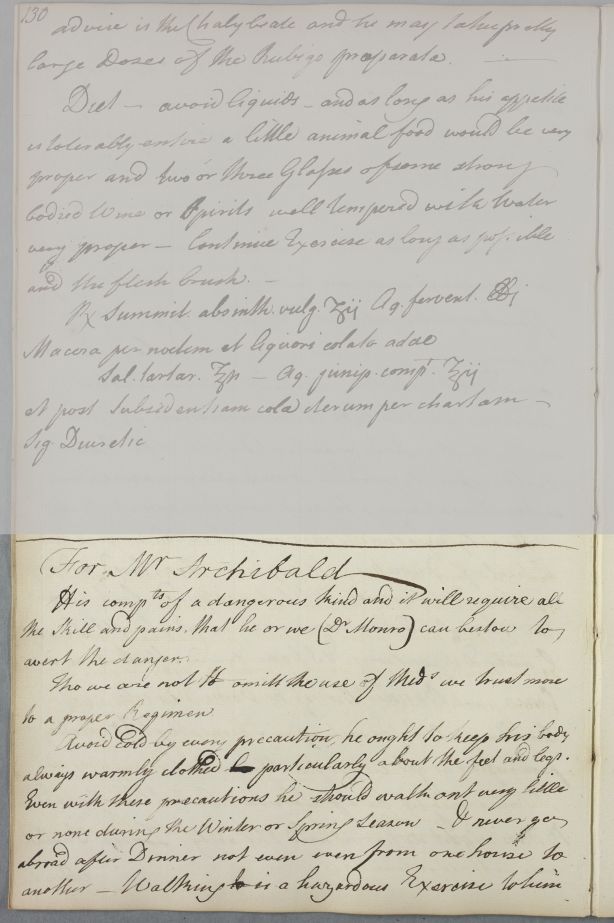 130
advice is the Chalybeate and he may take pretty
large Doses of the Rubigo præparata.
Diet — avoid liquids — and as long as his appetite
is tolerably entire a little animal food would be very
proper and two or three Glasses of some strong
bodied Wine or Spirits well tempered with Water
very proper — Continue Exercise as long as possible
and the flesh brush. —
℞ Summit. absinth. vulg. ʒij Aq. fervent. ℔j
Macera per noctem et liquori colato adde
Sal. tartar. ʒß — Aq. junip. compt. ʒij
et post subsidentiam cola iterum per chartam —
Sig. Diuretic
For Mr Archibald
His compts of a dangerous kind and it will require all
the Skill and pains, that he or we (Dr Monro) can bestow to
avert the danger.
Tho we are not to omitt the use of Meds we trust more
to a proper Regimen
Avoid Cold by every precaution, he ought to keep his body
always warmly clothed particularly about the feet and legs.
Even with these precautions he should walk out very little
or none during the Winter or Spring Season — & never go
abroad after Dinner not even even from one house to
another — Walking is a hazardous Exercise to him